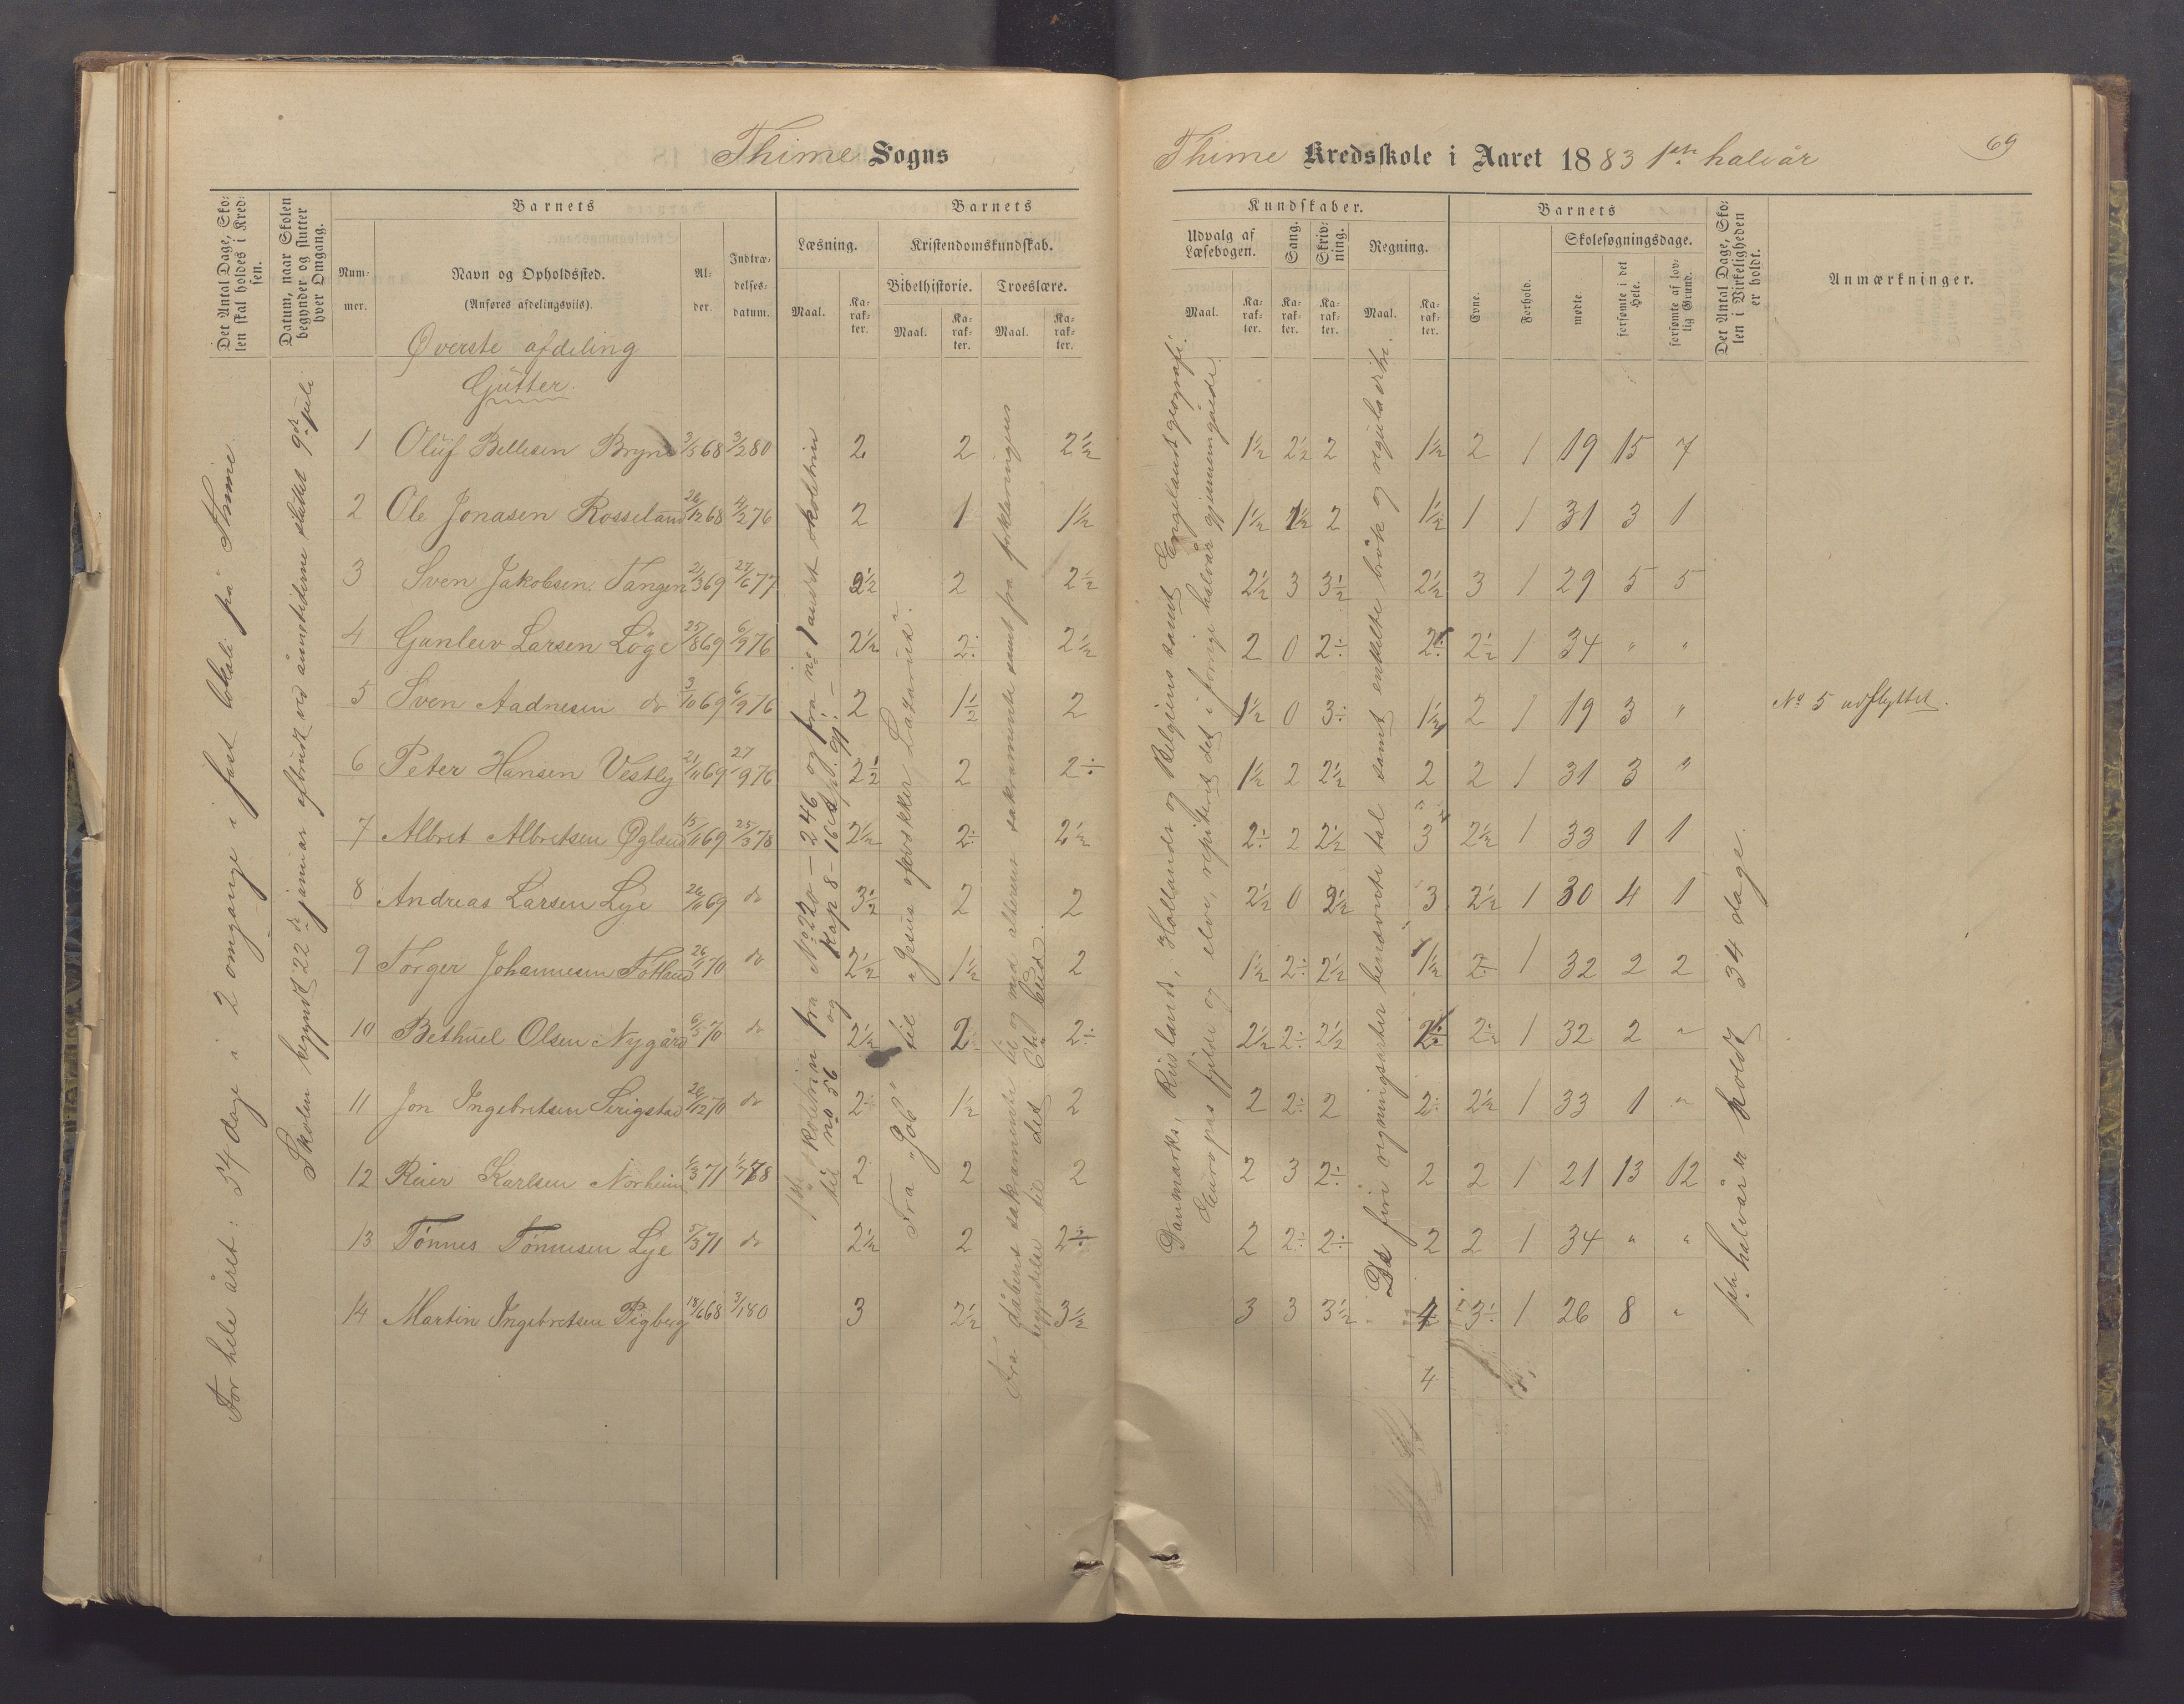 Thime Sogns
Thime Kredsskole i Aaret 1883 1ste halvår
69
Det Antal Dage, Skolen skal holdes i Kredsen.
Datum, naar Skolen begynder og slutter hver Omgang.
Barnets
Nummer.
Navn og Opholdssted.
(Anføres afdelingsviis).
Alder.
Indtrædelsesdatum.
Barnets
Læsning.
Maal.
Karakter.
Kristendomskundskab.
Bibelhistorie.
Maal.
Karakter.
Troeslære.
Maal.
Karakter.
Kundskaber.
Udvalg af Læsebogen.
Maal.
Karakter.
Sang.
Karakter.
Skrivning.
Karakter.
Regning.
Maal.
Karakter.
Barnets
Evne.
Forhold.
Skolesøgningsdage.
mødte
forsømte i det Hele.
forsømte af lovlig Grund.
Det Antal Dage, Skolen i Virkeligheden er holdt.
Anmærkninger.
Øverste afdeling
Gutter.
For hele året: 54 dage i 2 omgange i fast lokale på Thime
Skolen begyndt 22de januar afbrudt ved ånnetiderne sluttet 9de juli
1 Oluf Bellesen Bryne 3/5 68 3/2 80 2 2 2½ 1½ 2½ 2 1½ 2 1 19 15 7
2 Ole Jonasen Rosseland 26/12 68 4/2 76 2 1 1½ 1½ 1½ 2 1½ 1 1 31 3 1
3 Sven Jakobsen Tangen 21/3 69 27/6 77 2½ 2 2½ 2½ 3 3½ 2½ 3 1 29 5 5
4 Gunleiv Larsen Löge 25/8 69 6/9 76 2½ 2÷ 2½ 2 0 2÷ 2÷ 2½ 1 34 " "
5 Sven Aadnesen do 3/10 69 6/9 76 2 1½ 2 1½ 0 3÷ 1½ 2 1 19 3 " No 5 udflyttet.
6 Peter Hansen Vestly 21/11 69 27/9 76 2½ 2 2÷ 1½ 2 2½ 2 2 1 31 3 "
7 Albret Albretsen Øgland 15/11 69 25/3 78 2½ 2÷ 2½ 2÷ 2 2½ 3 2½ 1 33 1 1
8 Andreas Larsen Lye 26/11 69 do 3½ 2 2 2½ 0 2½ 3 2½ 1 30 4 1
9 Törger Johannesen Fotland 26/1 70 do 2½ 1½ 2 1½ 2÷ 2½ 1½ 2÷ 1 32 2 2
10 Bethuel Olsen Nygård 6/5 70 do 2½ 2 2÷ 2½ 2÷ 2½ 2÷ 1 32 2 "
11 Jon Ingebretsen Serigstad 26/12 70 do 2÷ 1½ 2 2 2÷ 2 2÷ 2½ 1 33 1 "
12 Reier Karlsen Norheim 1/3 71 1/7 78 2 2 2 2 3 2÷ 2 2 1 21 13 12
13 Tönnes Tönnesen Lye 5/3 71 do 2½ 2 2÷ 2 2÷ 2÷ 2 2 1 34 " "
14 Martin Ingebretsen Pigberg 18/6 68 3/1 80 3 2½ 3½ 3 3 3½ 3÷ 1 26 8 "
4
fra No 220 — 246 og fra no 1 andet skoletrin
til no 56 og Kap 8 – 16
Fra "Job" til "Jesus opvækker Lazarus".
Fra dåbens sakramente til og med alterens sakramente samt fra forklaringens
begyndelse til det 6te bud.
Danmarks, Ruslands, Hollands og Belgiens samt Englands geografi.
Europas fjelde og elve, repiteret det i forrige halvår gjennemgåede.
De fire regningsarter benævnte tal samt enkelte brök og reguladetri.
1ste halvår er holdt 34 dage.